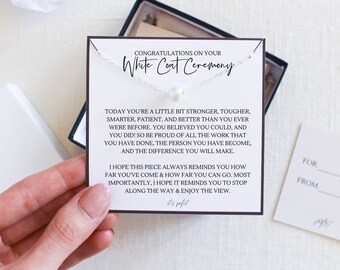 CONGRATULATIONS ON YOUR
White Coat Ceremony
TODAY YOU'RE A LITTLE BIT STRONGER, TOUGHER,
SMARTER, PATIENT, AND BETTER THAN YOU EVER
WERE BEFORE. YOU BELIEVED YOU COULD, AND
YOU DID! SO BE PROUD OF ALL THE WORK THAT
YOU HAVE DONE, THE PERSON YOU HAVE BECOME,
AND THE DIFFERENCE YOU WILL MAKE.
I HOPE THIS PIECE ALWAYS REMINDS YOU HOW
FAR YOU'VE COME & HOW FAR YOU CAN GO. MOST
IMPORTANTLY, I HOPE IT REMINDS YOU TO STOP
ALONG THE WAY & ENJOY THE VIEW.
FOR
FROM